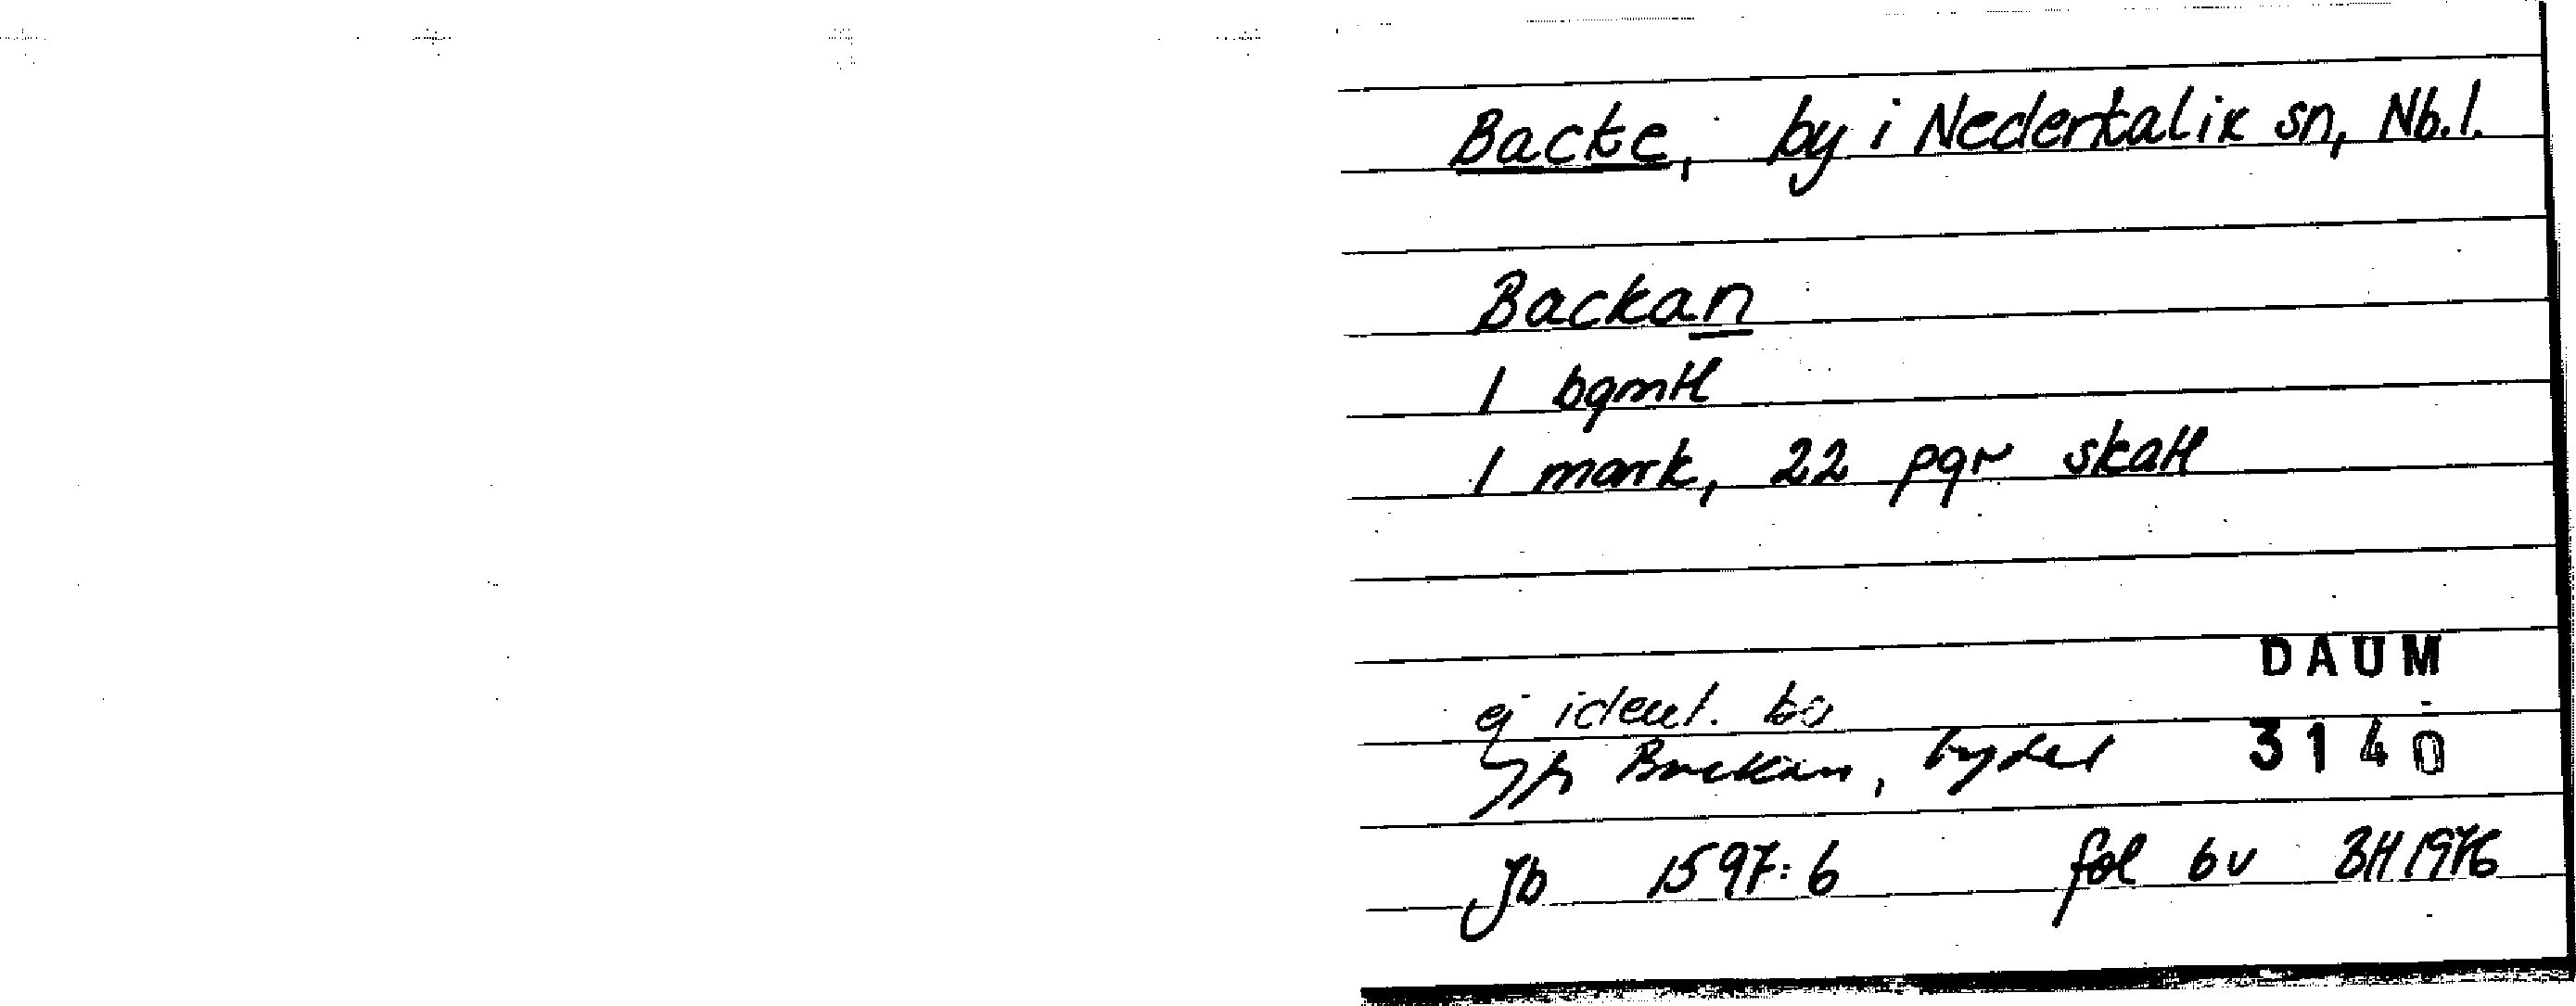 Backe, by i Nederkalix sn, Nb.l.
Backan
1 bgmtl
1 mark, 22 pgr skatt
DAUM
ej ident.
Backan, bydel 3140
Jb 1597:6 fol 6v BH 1976